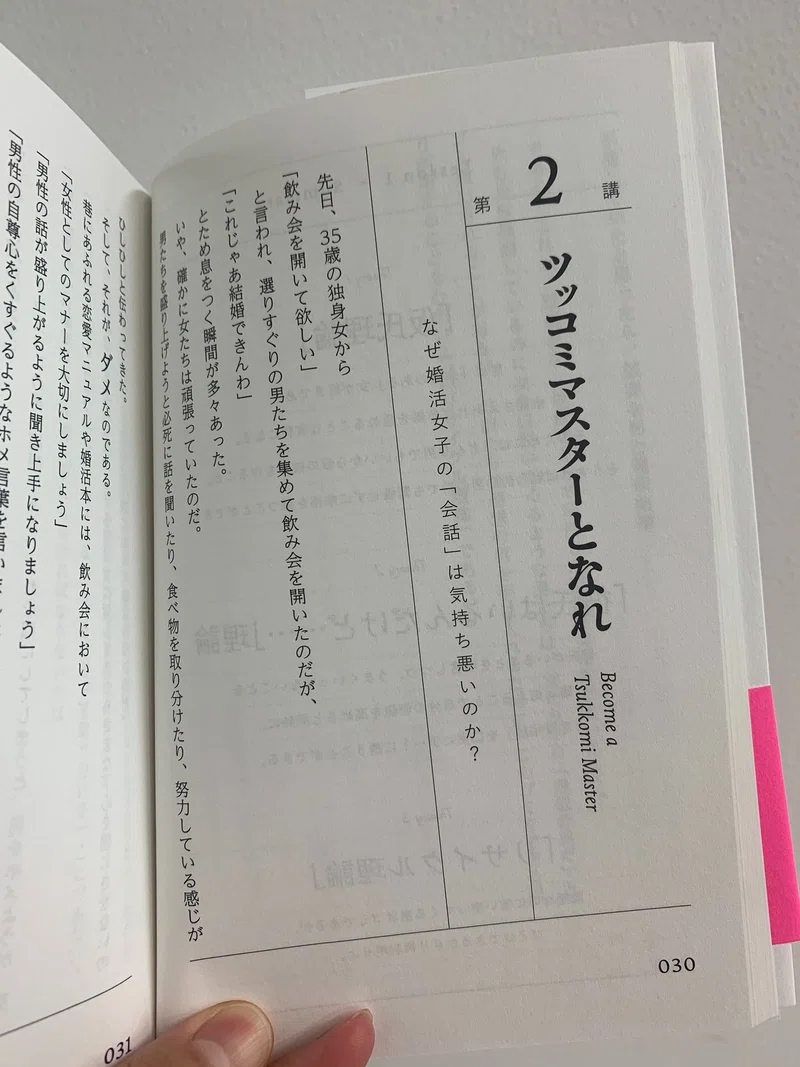 第2講
ツッコミマスターとなれ
Become a
Tsukkomi Master
なぜ婚活女子の「会話」は気持ち悪いのか?
先日、35歳の独身女から
「飲み会を開いて欲しい」
と言われ、選りすぐりの男たちを集めて飲み会を開いたのだが、
「これじゃあ結婚できんわ」
とため息をつく瞬間が多々あった。
いや、確かに女たちは頑張っていたのだ。
男たちを盛り上げようと必死に話を聞いたり、食べ物を取り分けたり、努力している感じが
030
ひしひしと伝わってきた。
そして、それが、ダメなのである。
巷にあふれる恋愛マニュアルや婚活本には、飲み会において
「女性としてのマナーを大切にしましょう」
「男性の話が盛り上がるように聞き上手になりましょう」
「男性の自尊心をくすぐるようなホメ言葉を言いまし
031